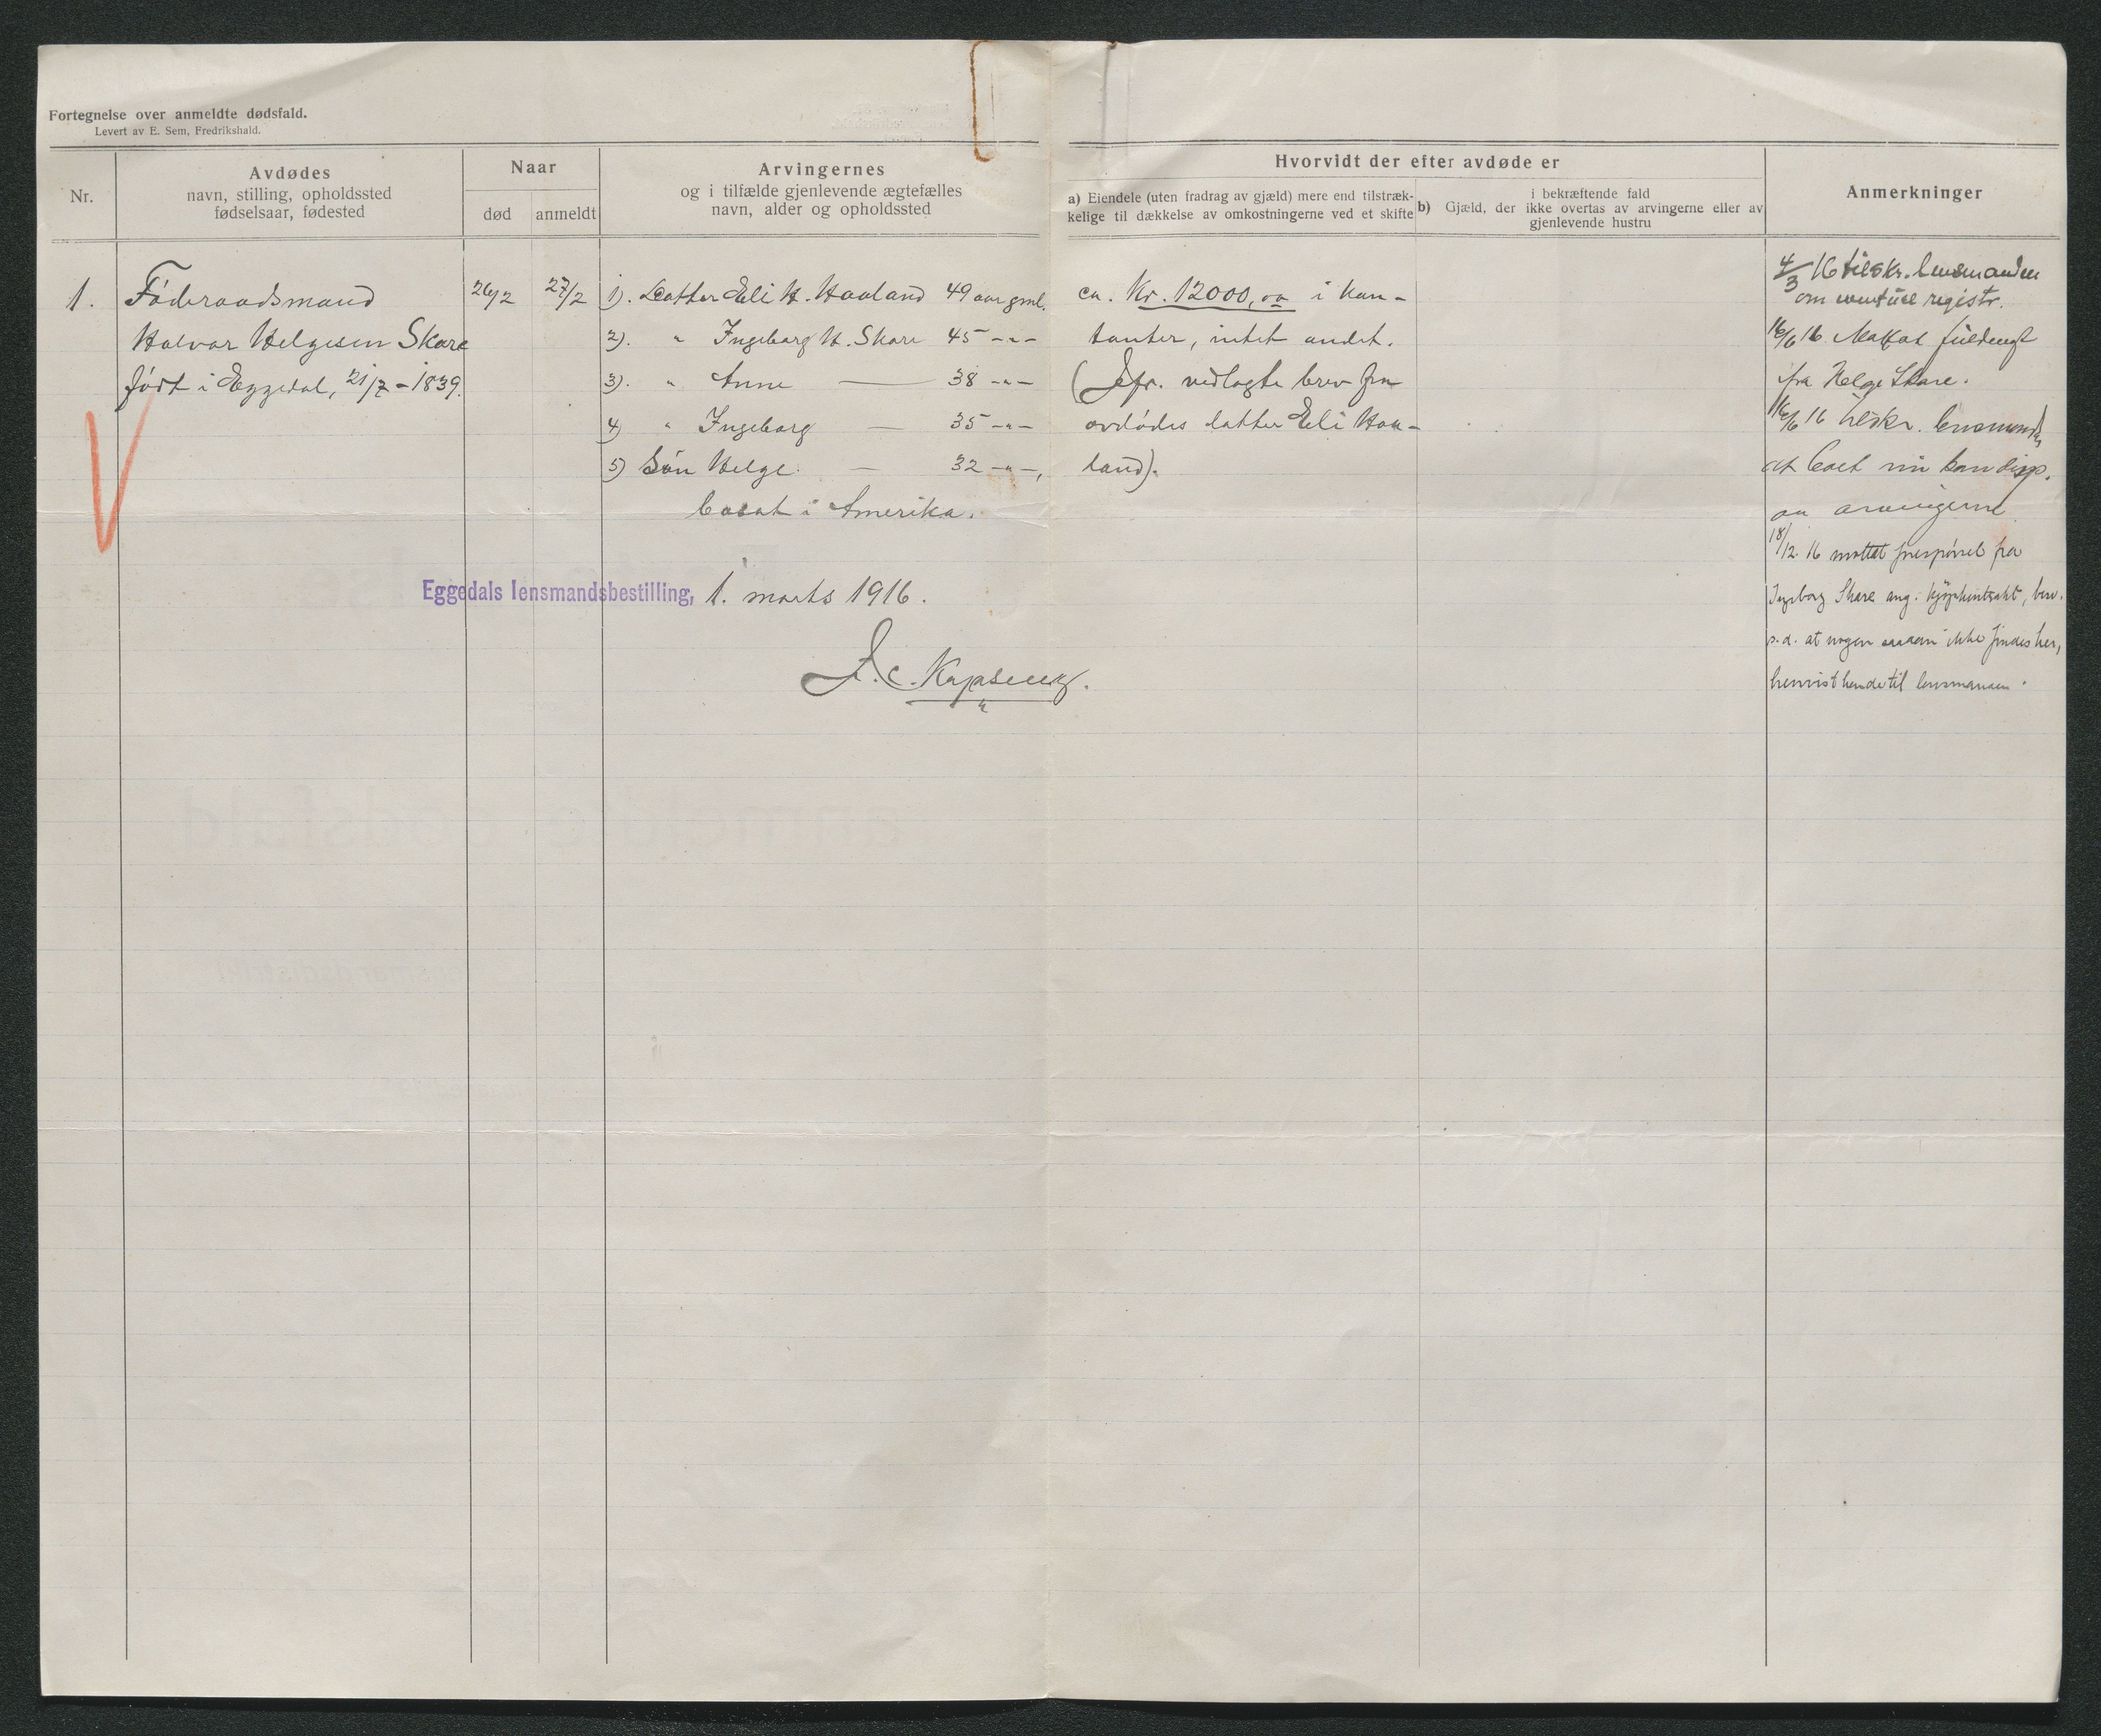 Fortegnelse over anmeldte dødsfald.
Levert av E. Sem, Fredrikshald.
Nr.
Avdødes
navn, stilling, opholdssted
fødselsaar, fødested
Naar
død
anmeldt
Arvingernes
og i tilfælde gjenlevende ægtefælles
navn, alder og opholdssted
Hvorvidt der efter avdøde er
a) Eiendele (uten fradrag av gjæld) mere end tilstræk-
kelige til dækkelse av omkostningerne ved et skifte
b) Gjæld, der
i bekræftende fald
ikke overtas av arvingerne eller av
gjenlevende hustru
Anmerkninger
1.
Föderaadsmand
Halvor Helgesen Skare
født i Eggedal, 21/7 - 1839.
26/2
27/2
1). Datter Eli H. Haaland 49 aar gml.
2). " Ingeborg H. Skare 45 -"-
3). " Anne — 38 -"-
4) " Ingeborg — 35 -"-
5) Sön Helge — 32 -"-,
bosat i Amerika.
ca. Kr. 12000,00 i kon-
tanter, intet andet.
(Jfr. vedlagte brev fra
avdødes datter Eli Haa-
land).
4/3 16 tilskr. lensmanden
om eventuel registr.
16/6 16 Mottat fuldmagt
fra Helge Skare.
16/6 16 tilskr. lensmanden
at boet nu kan disp.
av arvingerne
18/12. 16 mottat forespørsel fra
Ingeborg Skare ang. kjøpekontrakt, besv.
s.d. at nogen saadan ikke findes her,
henvist hende til lensmanden.
Eggedals lensmandsbestilling, 1. marts 1916.